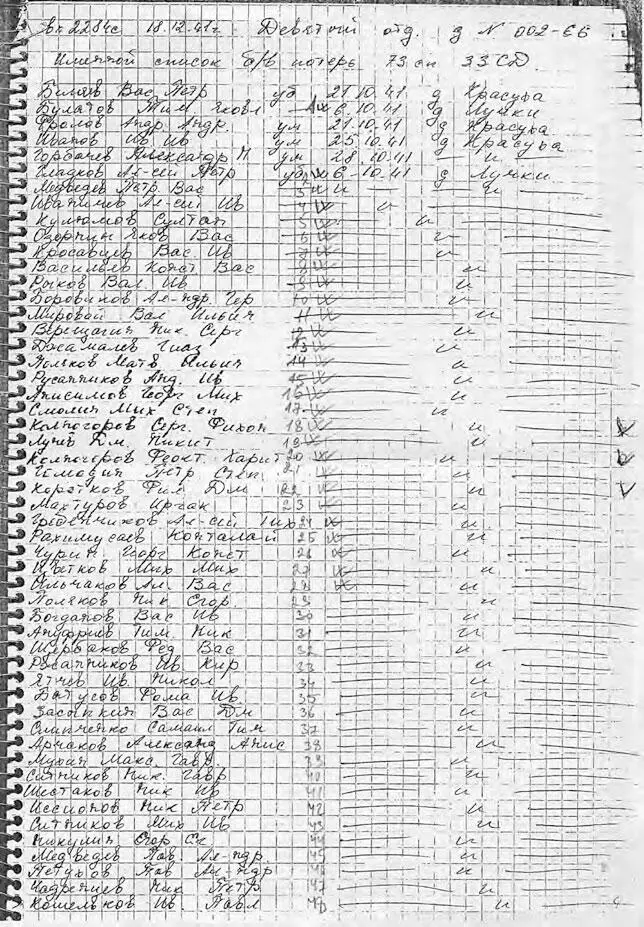 вх 2284с 18.12.41г. Девятый отд. д N 002-
Именной список б/в потерь 73 сп 33 СД.
Беляев Вас Петр уб 21.10.41 д Красуха
Булатов Тим Яковл 6.10.41 д Лучки
Фролов Андр. Андр. ум 21.10.41 д Красуха
Иванов Ив Ив ум 25.10.41 д Красуха
Горбачев Александр П ум 28.10.41 и
Гладков Ал-сей Петр уб 6-10.41 д Лучки
Медведев Петр. Вас 3 и и
Иваничев Ал-сей Ив 4 и
Кулюмов Султан 5 и
Озорнин Яков Вас 6 и
Кросавцев Вас. Ив 7 и
Васильев Конст Вас 8 и
Рыков Вал. Ив 9 и
Боровиков Ал-ндр. Гер 10 и
Мировой Вал Ильич 11 и
Верещагин Ник. Серг 12 и
Джамалев Гиаз 13 и
Поляков Матв Ильич 14 и
Русанников Анд. Ив 15 и
Анисимов Георг Мих 16 и
Смолин Мих Степ 17 и
Колногоров Серг. Фихон 18 и
Лунев Дм. Никит 19 и
Колногоров Феокт. Харит 20 и
Петр Степ 21 и
Коротков Фил Дм 22 и
Махтуров 23 и
Гребенчиков Ал-сей Тих 24 и
Рахимусаев 25 и
Чурин Георг Конст 26 и
Мих Мих 27 и
Ильчаков Ал. Вас 28 и
Поляков Ник Егор 29 и
Богданов Вас Ив 30 и
Ануфриев Тим. Ник 31 и
Щербаков Фед Вас 32 и
Ив Кир 33 и
Ятчев Ив. Никол 34 и
Батусов Фома Ив. 35 и
Засыпкин Вас Дм 36 и
Симиченко Самаил Тим 37 и
Арчаков Александ Анис 38 и
Мухин Макс. Гавр. 39 и
Ситников Ник. Гавр 40 и
Шестаков Ник Ив 41 и
Иессиопов Ник Петр 42 и
Ситников Мих Ив 43 и
Никулин Егор Ст 44 и
Медведев Пав. Ал-ндр. 45 и
Петухов Пав Ал-ндр 46 и
Ник Петр 47 и
Кошельков Ив. Павл 48 и